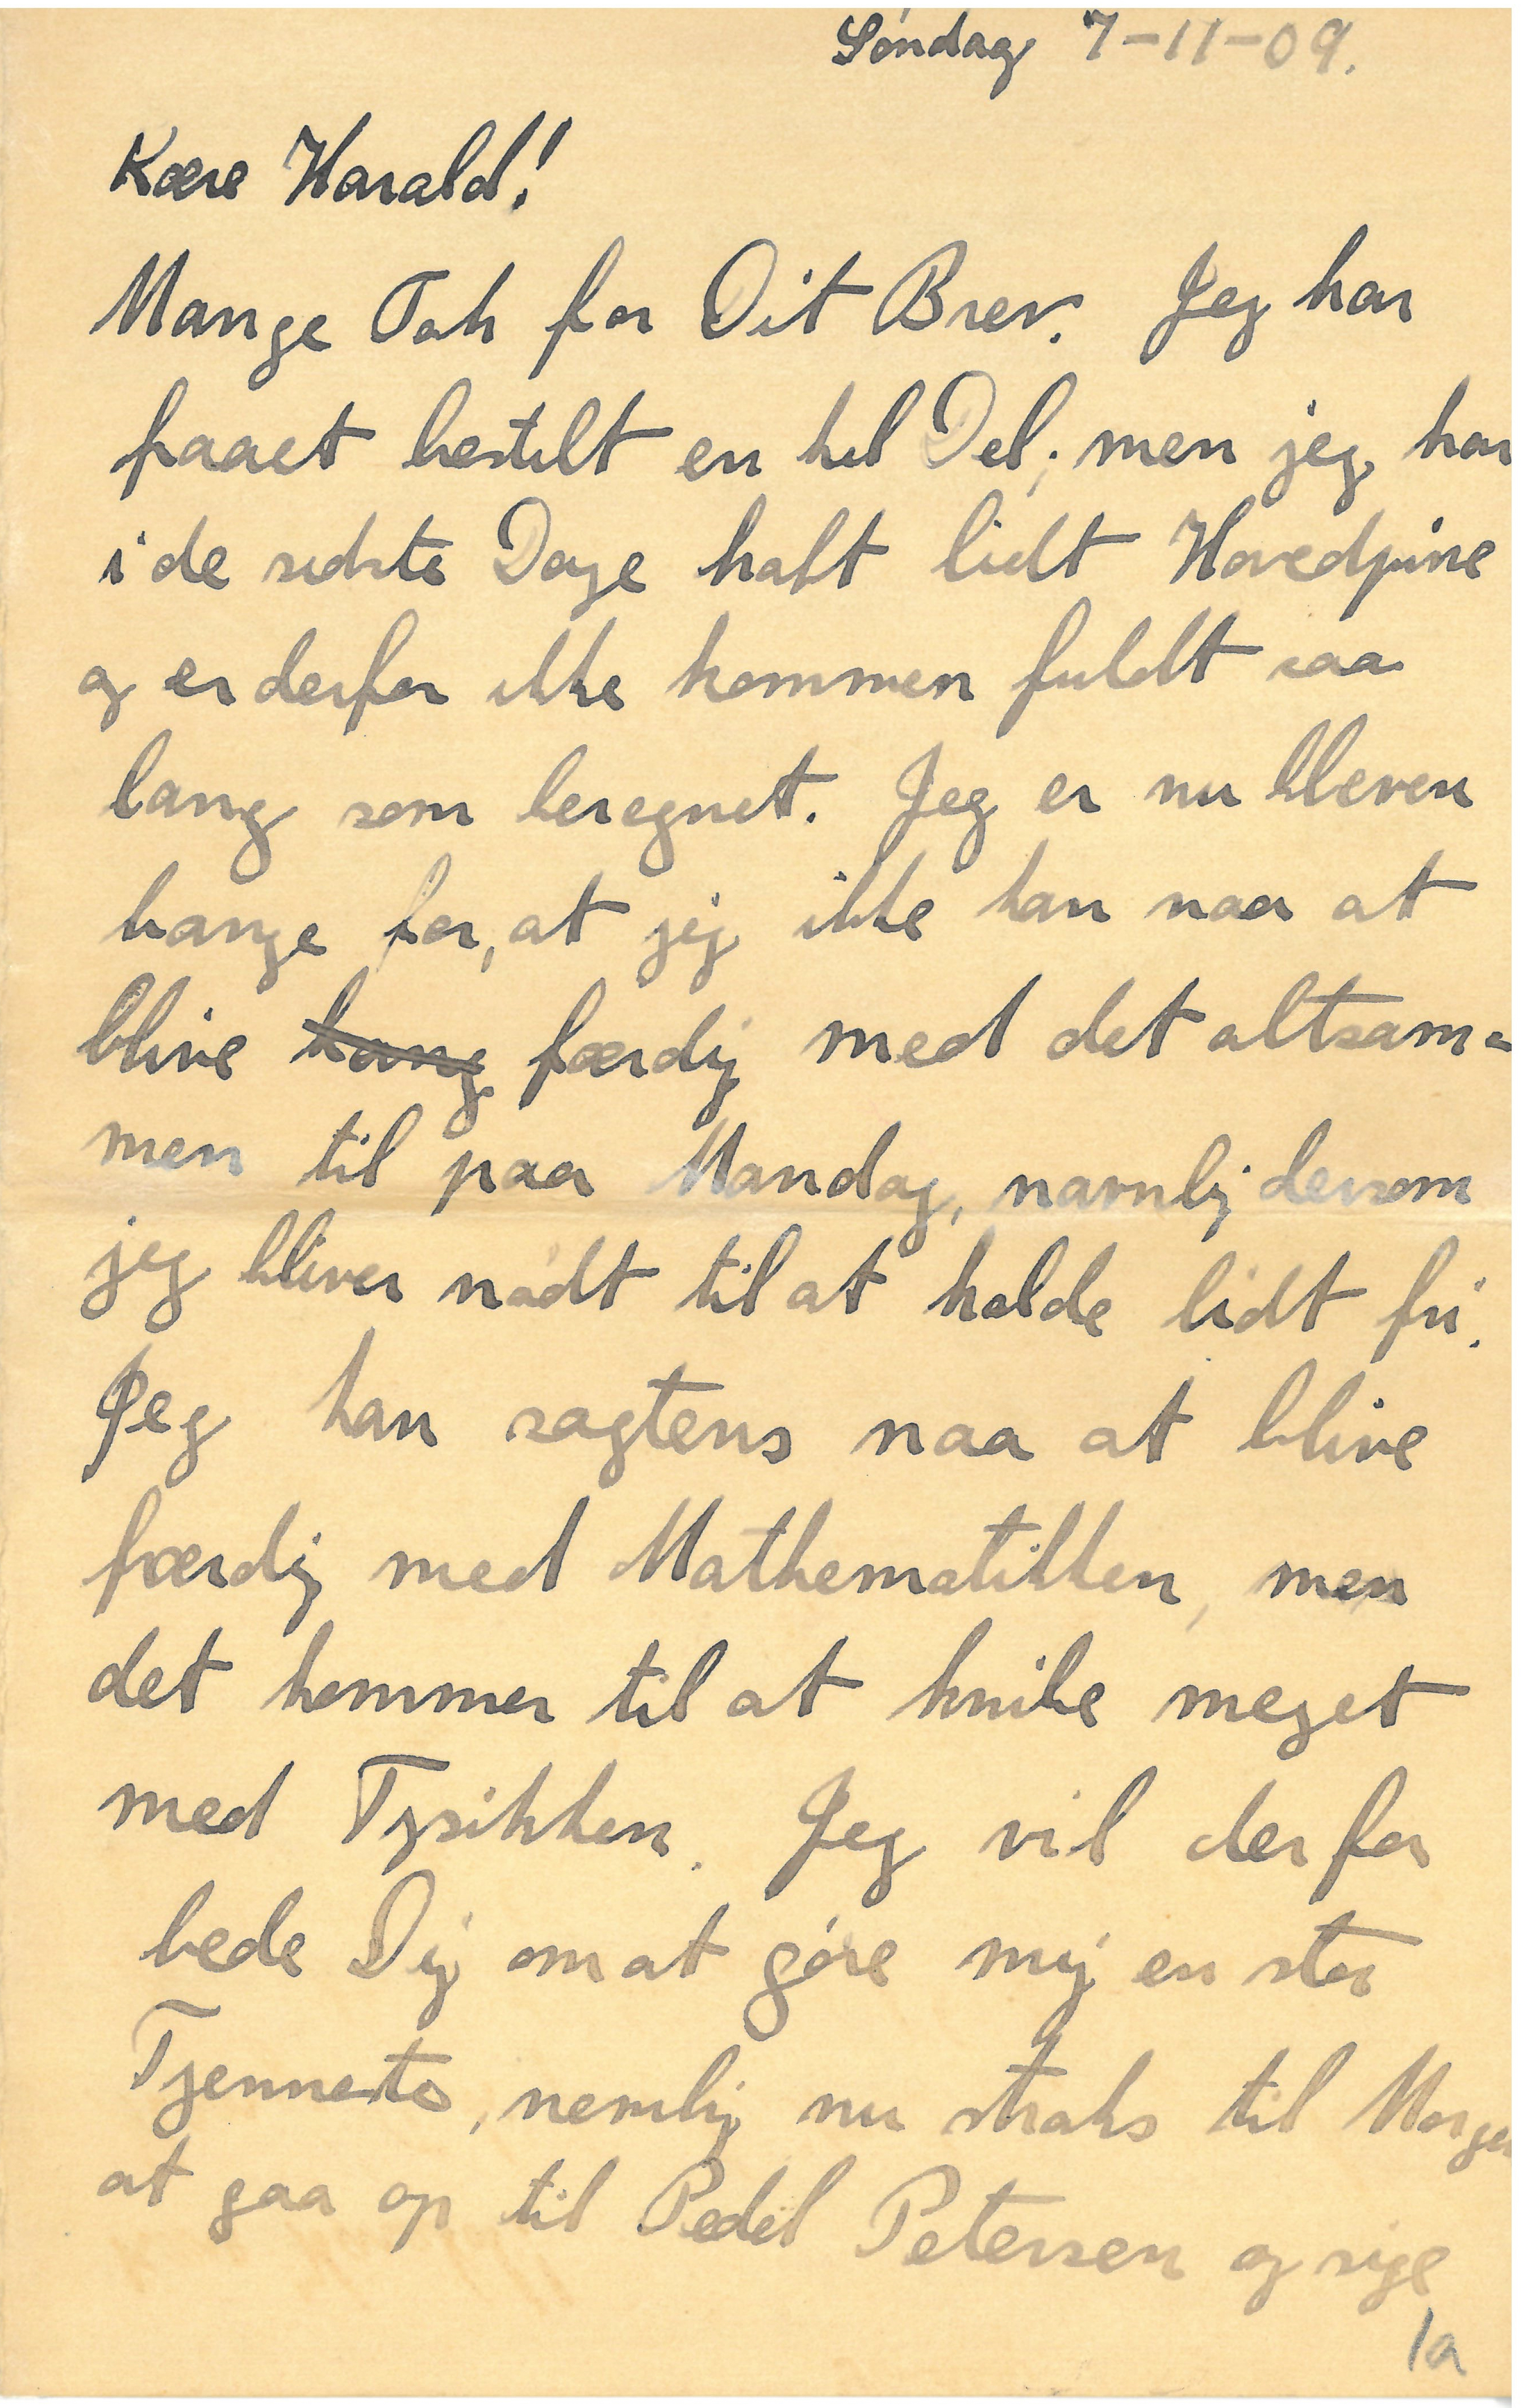 Søndag 7-11-09.
Kære Harald!
Mange Tak for Dit Brev. Jeg har
faaet bestilt en hel Del; men jeg har
i de sidste Dage haft lidt Hovedpine
og er derfor ikke kommen fuldt saa
lang som beregnet. Jeg er nu bleven
bange for, at jeg ikke kan naa at
blive bang færdig med det altsam=
men til paa Mandag, navnlig dersom
jeg bliver nødt til at holde lidt fri.
Jeg kan sagtens naa at blive
færdig med Mathematikken, men
det kommer til at knibe meget
med Fysikken. Jeg vil derfor
bede Dig om at gøre mig en stor
Tjenneste, nemlig nu straks til Morgen
at gaa op til Pedel Petersen og sige
1a